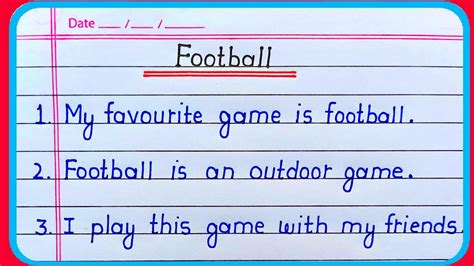 Date __/__/__
Football
1. My favourite game is football.
2. Football is an outdoor game.
3. I play this game with my friends